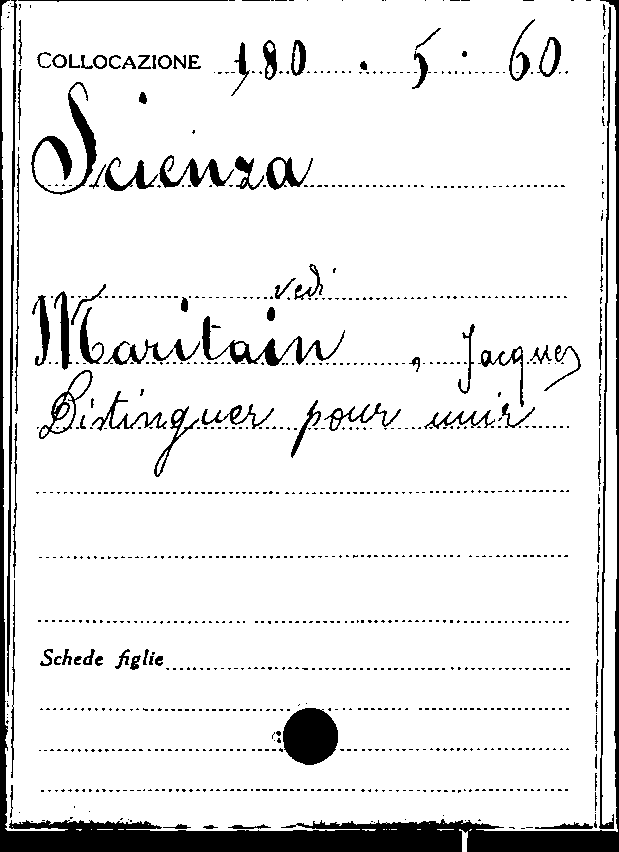 COLLOCAZIONE 180 . 5 . 60
Scienza
vedi
Maritain , Jacques
Distinguer pour unir
Schede figlie